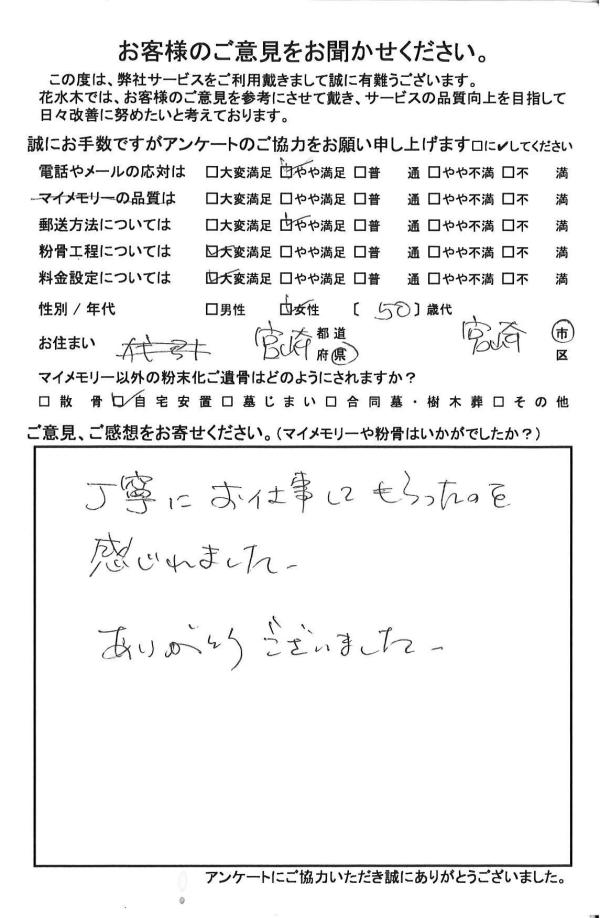 お客様のご意見をお聞かせください。
この度は、弊社サービスをご利用戴きまして誠に有難うございます。
花水木では、お客様のご意見を参考にさせて戴き、サービスの品質向上を目指して
日々改善に努めたいと考えております。
誠にお手数ですがアンケートのご協力をお願い申し上げます□に✔してください
電話やメールの応対は □大変満足 ☑やや満足 □普 通 □やや不満 □不 満
マイメモリーの品質は □大変満足 □やや満足 □普 通 □やや不満 □不 満
郵送方法については □大変満足 ☑やや満足 □普 通 □やや不満 □不 満
粉骨工程については ☑大変満足 □やや満足 □普 通 □やや不満 □不 満
料金設定については ☑大変満足 □やや満足 □普 通 □やや不満 □不 満
性別 / 年代 □男性 ☑女性 〔 50 〕歳代
お住まい 宮崎 都道府県 宮崎 市区
マイメモリー以外の粉末化ご遺骨はどのようにされますか?
□散 骨 ☑自宅安置 □墓じまい □合同墓・樹木葬 □その他
ご意見、ご感想をお寄せください。(マイメモリーや粉骨はいかがでしたか?)
丁寧にお仕事してもらったのを
感じれました。
ありがとうございました。
アンケートにご協力いただき誠にありがとうございました。